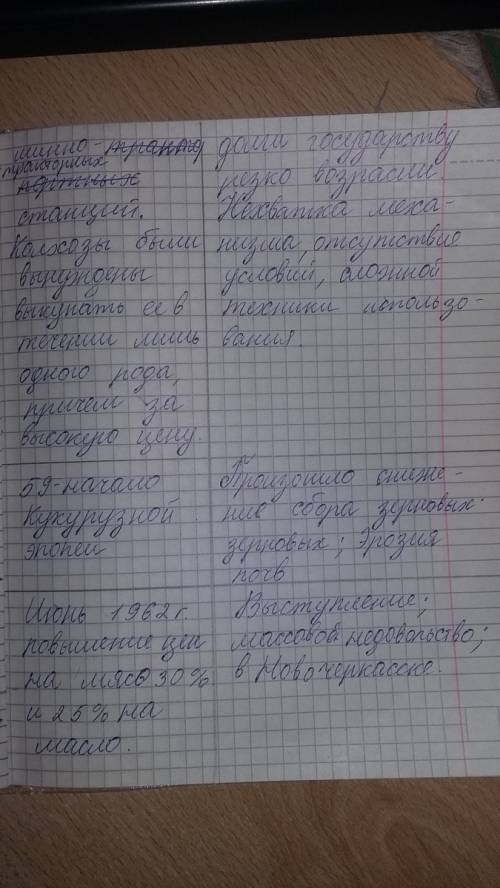 шинно-тракто
тракторных
портных
станций.
Колхозы были
вынуждены
выкупать ее в
течении лишь
одного года,
причем за
высокую цену.
долги государству
резко возрасли.
Нехватка меха-
низма, отсутствие
условий, сложной
техники использо-
вания.
59-начало
Кукурузной
эпопеи
Произошло сниже-
ние сбора зерновых.
зерновых; Эрозия
почв
Июнь 1962 г.
повышение цен
на мясо 30%
и 25% на
масло.
Выступление;
массовое недовольство;
в Новочеркасске.